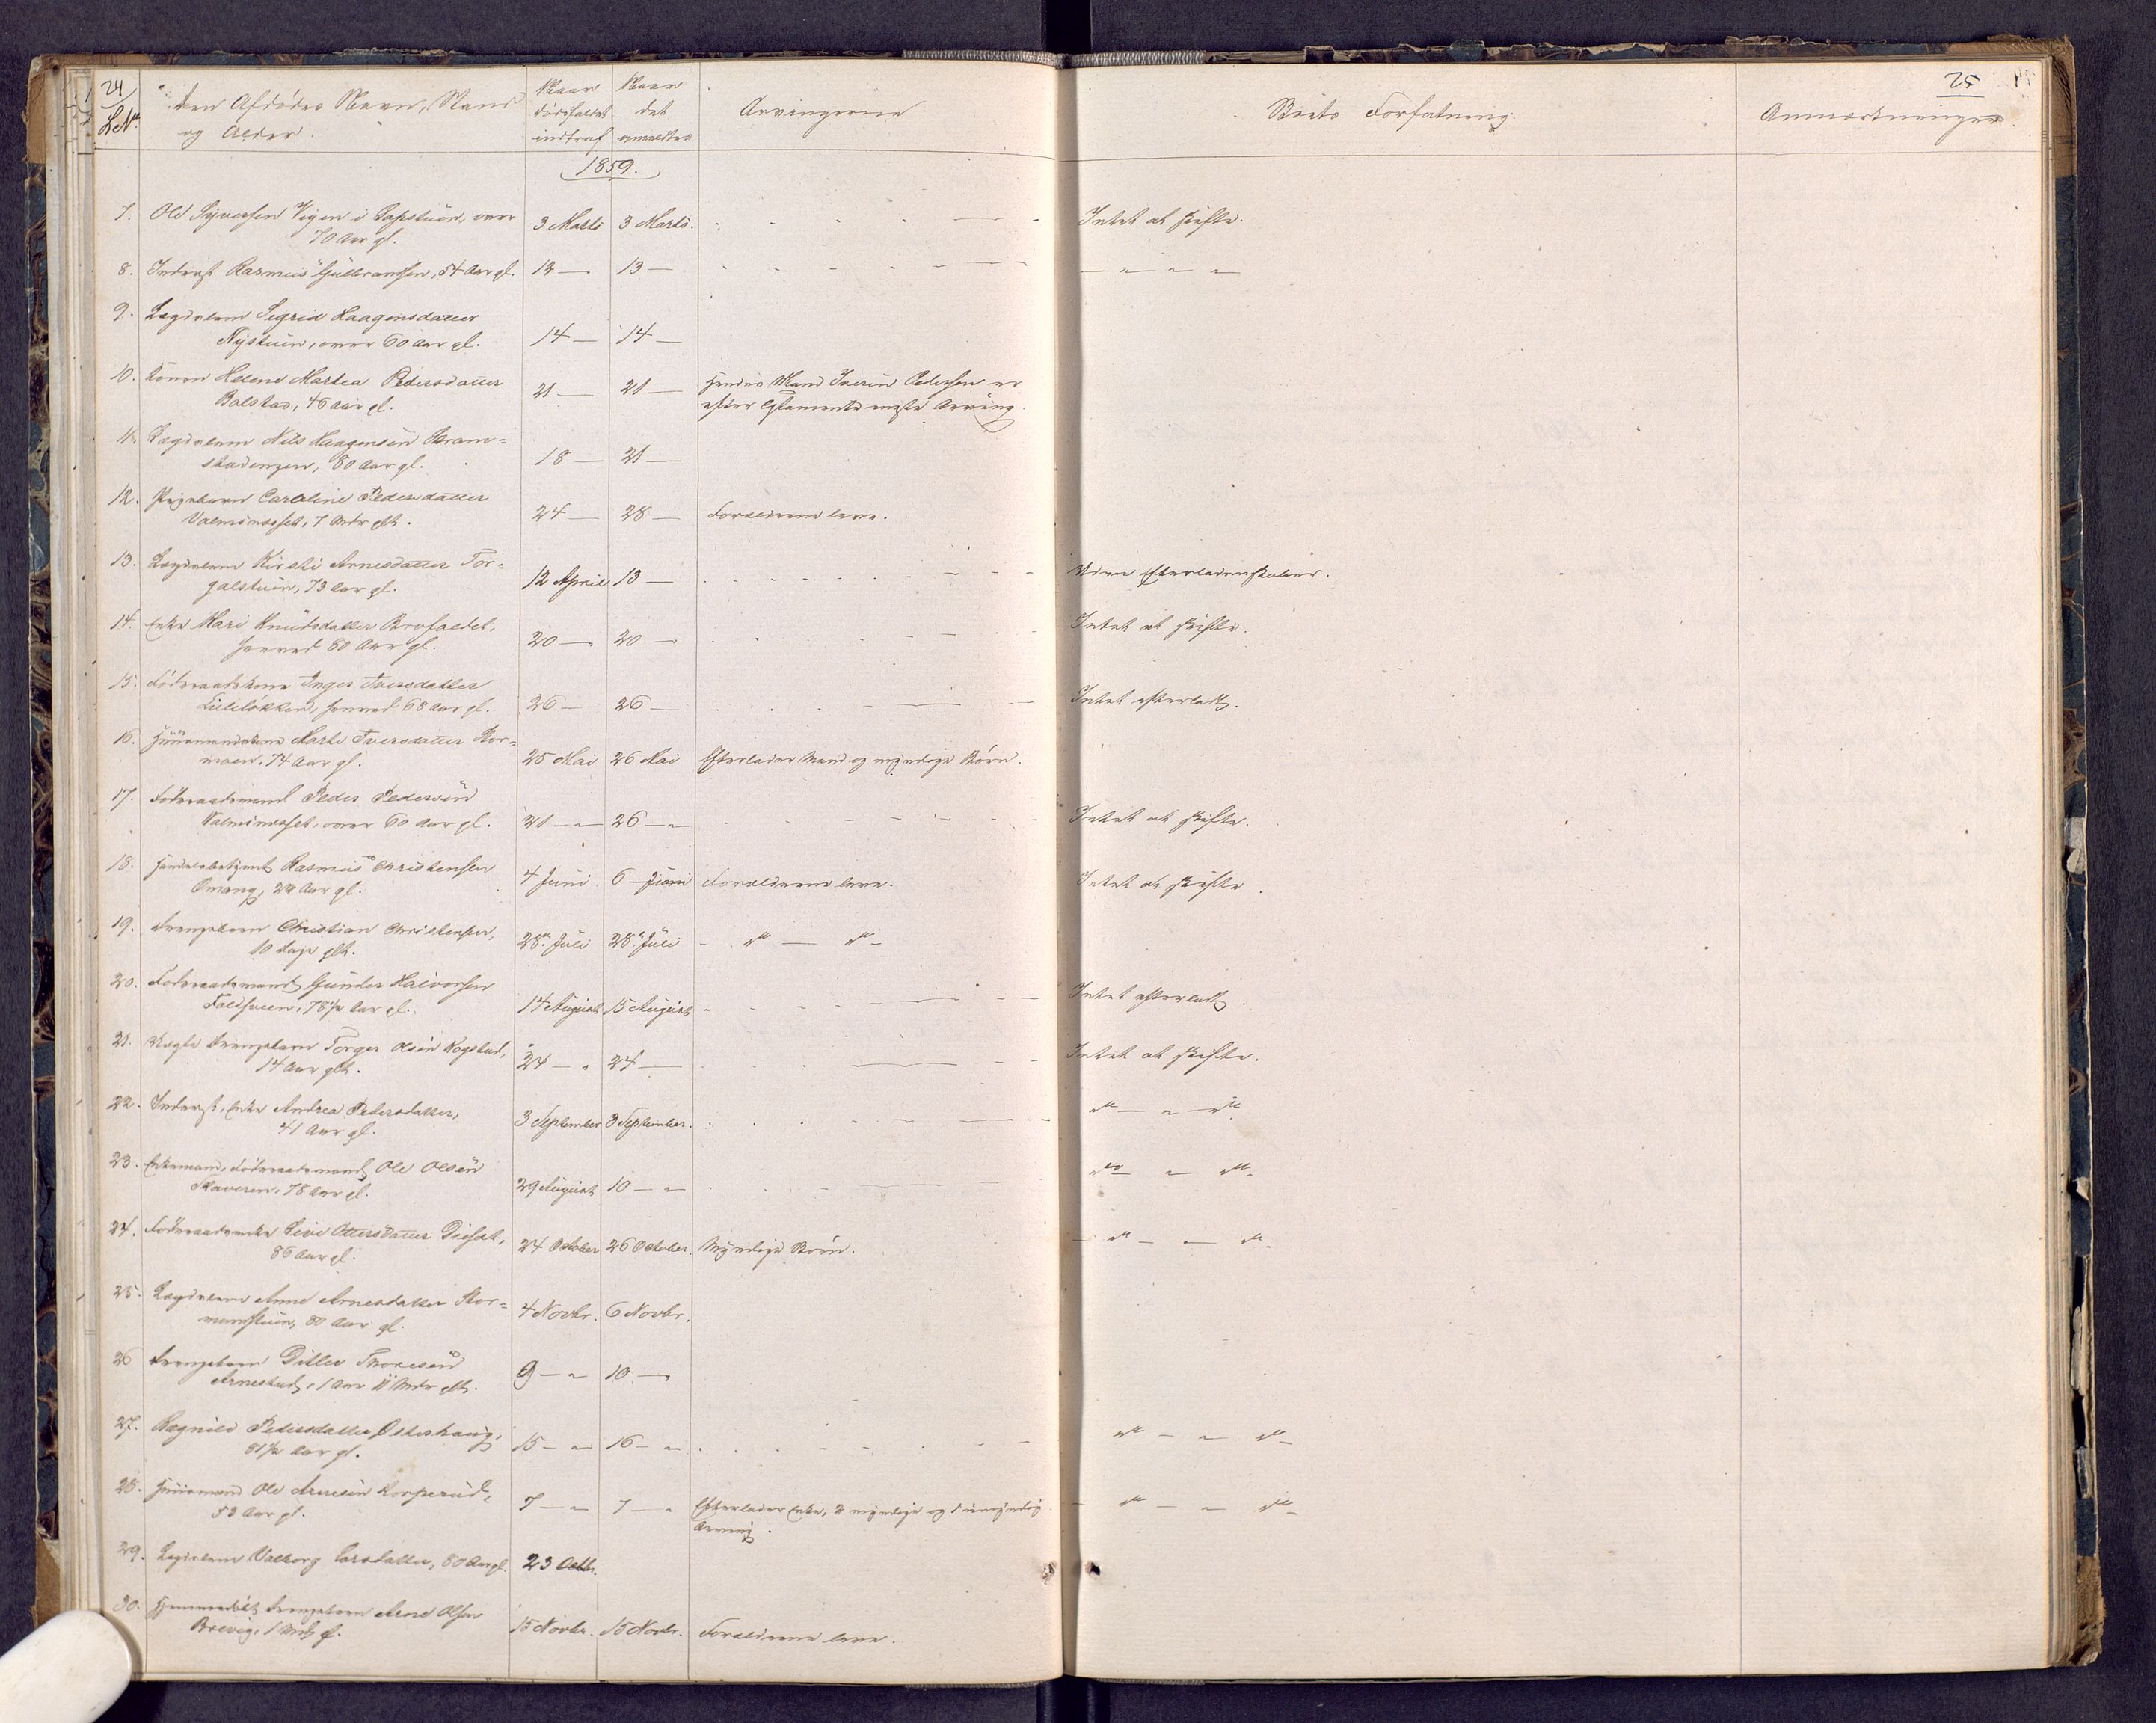 24
25
L. No.
Den Afdødes Navn, Stand
og Alder.
Naar
Dødsfaldet
indtraf
Naar
det
anmeldtes
Arvingerne
Boets Forfatning.
Anmærkninger.
1859.
7. Ole Syversen Vigen i , over
70 Aar gl.
3 Marts 3 Marts.
Intet at skifte.
8. Inderst Rasmus Gulbransen, 54 Aar gl. 12 — 13 —
9. Lægdslem Sigrid Haagensdatter
Nystuen, over 60 Aar gl. 14 — 14 —
10. Konen Helene Martea Pedersdatter
Bolstad, 46 Aar gl. 21 — 21 —
Hendes Mand Iver Pedersen er
eneste Arving.
11. Lægdslem Nils Haagensen Skram=
stadengen, 80 Aar gl. 18 — 21 —
12. Pigebarn Caroline Pedersdatter
7 Mdr glt. 24 — 28 — Forældrene leve.
13. Lægdslem Kirsti Arnesdatter Tor=
galstuen, 73 Aar gl. 12 April 13 —
Uden Efterladenskaber.
14. Enke Mari Knudsdatter Brofaldet,
80 Aar gl. 20 — 20 —
Intet at skifte.
15. Føderaadskone Inger Iversdatter
Lilleløkken, 68 Aar gl. 26 — 26 —
Intet efterladt.
16. Huusmandskone Marte Iversdatter Stor=
moen, 74 Aar gl. 25 Mai 26 Mai Efterlader Mand og myndige Børn.
17. Føderaadsmand Peder Pedersen
over 60 Aar gl. 21 — " 26 — "
Intet at skifte.
18. Handelsbetjent Rasmus Christensen
Omang, 24 Aar gl. 4 Juni 6 Juni Forældrene leve.
Intet at skifte.
19. Drengebarn Christian Christensen,
10 Dage glt. 28 Juli 28 Juli — " — " —
20. Føderaadsmand Gunder Halvorsen
78½ Aar gl. 14 August 15 August
Intet efterladt.
21. Drengebarn Torger Olsen Kogstad,
14 Aar glt. 24 — " 24 —
Intet at skifte.
22. Inderst, Enke Andrea Pedersdatter,
41 Aar gl. 3 September 3 September.
23. Enkemand, Føderaadsmand Ole Olsen
78 Aar gl. 29 August 10 — "
24. Føderaadsenke Live Ottersdatter
86 Aar gl. 24 October 26 October. Myndige Børn.
25. Lægdslem Anne Arnesdatter Stor=
80 Aar gl. 4 Novbr. 6 Novbr.
26 Drengebarn Ditlev Thoresen
Arnestad, 1 Aar 11 Mdr glt. 9 — " 10 —
27. Ragnild Pedersdatter Østerhaug,
81½ Aar gl. 15 — " 16 — "
28. Huusmand Ole Arnesen Korperud,
53 Aar gl. 7 — " 7 — " Efterlader Enke, 2 myndige og 1 umyndig
Arving.
29. Lægdslem Valborg Larsdatter, 80 Aar gl. 23 Octbr.
30. Drengebarn Arne Olsen
Brevig, 1 Mdr gl. 15 Novbr. 15 Novbr. Forældrene leve.